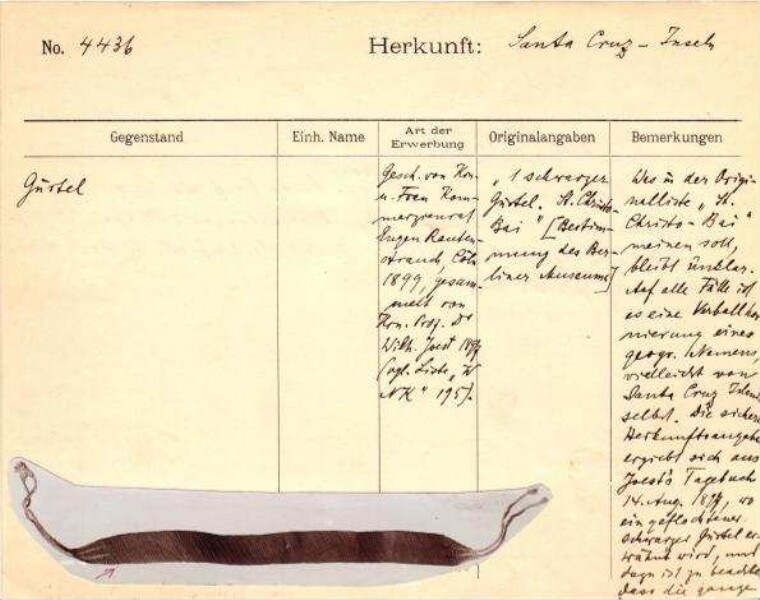 No. 4436
Herkunft: Santa Cruz - Inseln
Gegenstand
Einh. Name
Art der
Erwerbung
Originalangaben
Bemerkungen
Gürtel
Gesch. von Hrn.
u. Frau Kom-
merzienrat
Eugen Rauten-
strauch, Cöln
1899, gesam-
melt von
Hrn. Prof. Dr
Wilh. Joest 1897
(vgl. Liste „W
NK“ 195).
„1 schwarzer
Gürtel. St. Christo-
Bai“ [Bestim-
mung des Ber-
liner Museums]
Was in der Origi-
nalliste „St.
Christo-Bai“
meinen soll,
bleibt unklar.
Auf alle Fälle ist
es eine Verballhor-
nisierung eines
geogr. Namens,
vielleicht von
Santa Cruz
selbst. Die sichere
Herkunftsangabe
ergiebt sich aus
Joest's Tagebuch
14. Aug. 1897, wo
ein geflochtener
schwarzer Gürtel er-
wähnt wird, und
dazu ist zu beachten
dass die ganze